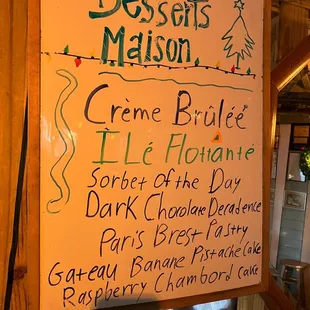 Desserts
Maison
Crème Brûléé
ILé Flottanté
Sorbet of the Day
Dark Chocolate Decadence
Paris Brest Pastry
Gateau Banane Pistache Cake
Raspberry Chambord Cake